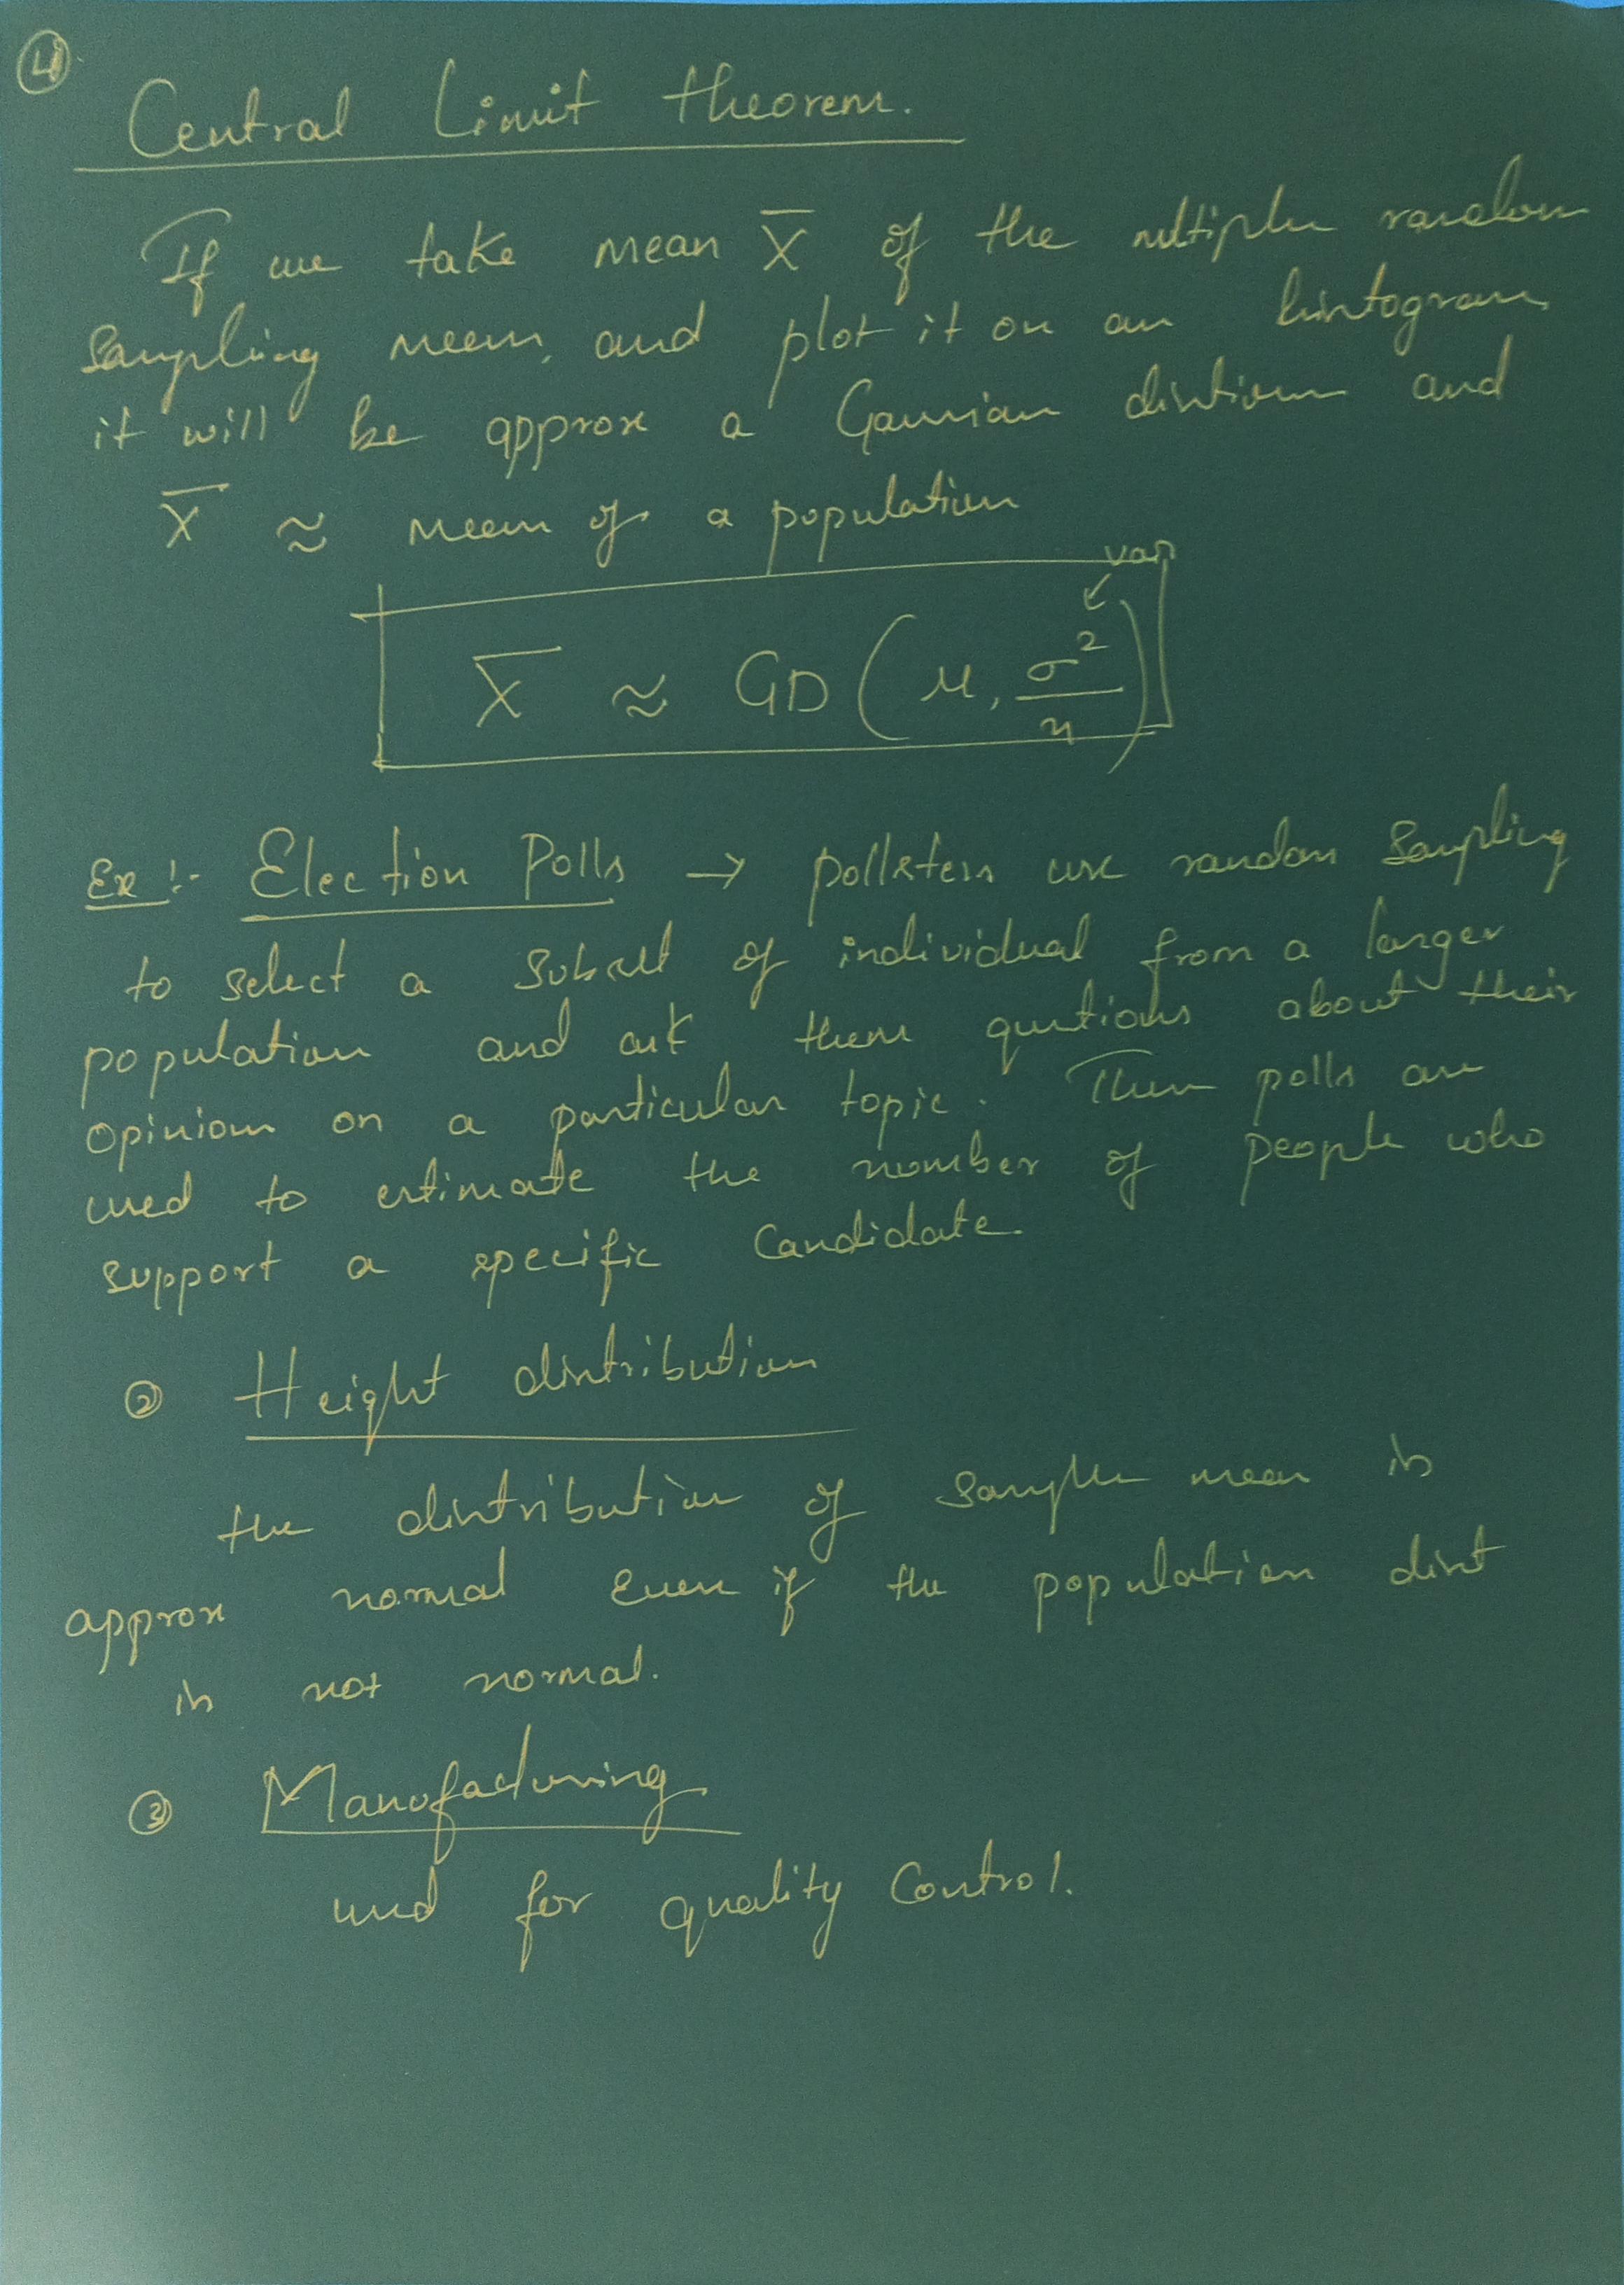 ④
Central Limit theorem.
If we take mean X̄ of the multiple random
Sampling mean, and plot it on an histogram,
it will be approx a Gaussian and
X̄ ≈ mean of a population
var
↙
X̄ ≈ GD (μ, σ²/n)
Ex :- Election Polls → pollsters use random Sampling
to select a Subset of individual from a larger
population and ask them questions about their
opinion on a particular topic. These polls are
used to estimate the number of people who
support a specific Candidate.
② Height distribution
the distribution of Sample mean is
approx normal Even if the population dist
is not normal.
③ Manufacturing
used for quality Control.